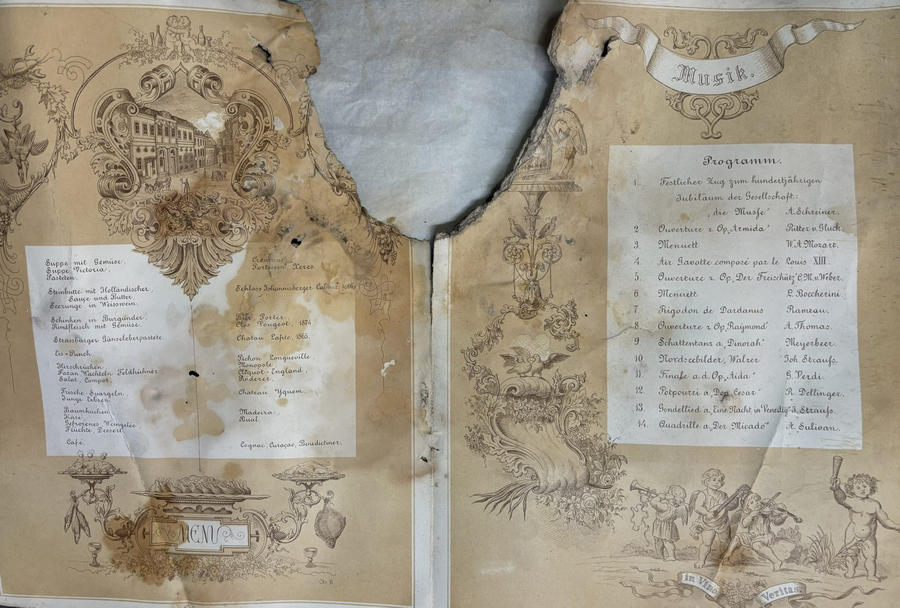 Suppe mit Gemüse.
Suppe Victoria.
Pasteten.
Steinbutte mit Holländischer
Sauce und Butter.
Seezunge in Weisswein.
Schinken in Burgunder.
Rindfleisch mit Gemüse.
Strassburger Gänseleberpastete.
Eis-Punch.
Hirschrücken
Fasan, Wachteln, Feldhühner.
Salat, Compot.
Frische Spargeln.
Junge Erbsen.
Baumkuchen
Käse
Gefrorenes Weingelée
Früchte, Dessert.
Café.
Portwein, Xeres.
Schloss Johannisberger Cabinet
Porter.
Clos Vougeot, 1874
Chateau Lafite, 1865.
Pichon Longueville.
Monopole
Clicquot-England,
Roederer.
Chateau Yquem.
Madeira.
Bual.
Cognac, Curaçao, Benedictiner.
MENU
Musik.
Programm.
1. Festlicher Zug zum hundertjährigen
Jubiläum der Gesellschaft:
„die Muse" A. Schreiner.
2. Ouverture z. Op. „Armida" Ritter v. Gluck.
3. Menuett W. A. Mozart.
4. Air Gavotte composé par le Louis XIII.
5. Ouverture z. Op. „Der Freischütz" C. M. v. Weber.
6. Menuett L. Boccherini.
7. Rigodon de Dardanus Rameau.
8. Ouverture z. Op. „Raymond" A. Thomas.
9. Schattentanz a. „Dinorah" Meyerbeer.
10. Nordseebilder, Walzer Joh. Strauss.
11. Finale a. d. Op. „Aida" G. Verdi.
12. Potpourri a. „Don Cesar" R. Dellinger.
13. Gondellied a. „Eine Nacht in Venedig" J. Strauss.
14. Quadrille a. „Der Micado" A. Sulivan.
in Vino Veritas.